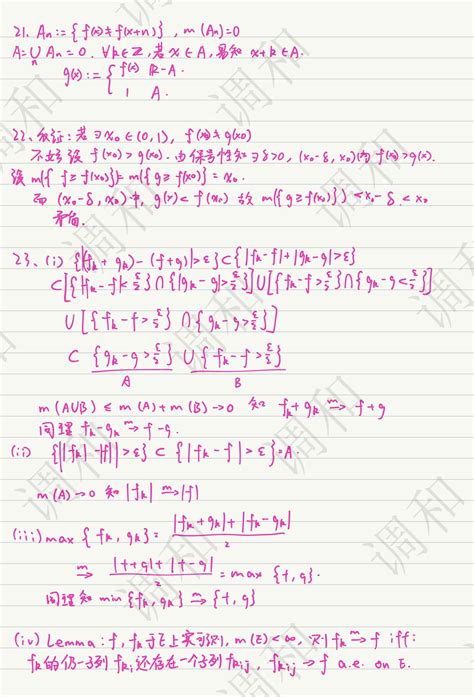 21. An := {f(x) ≠ f(x+n)}, m(An)=0
A=∪An = 0. ∀k∈Z, 若 x∈A, 易知 x+k∈A.
n
g(x) := { f(x) R-A.
1 A.
22. 反证: 若 ∃x₀∈(0,1), f(x₀)≠g(x₀)
不妨设 f(x₀) > g(x₀). 由保号性知 ∃δ>0, (x₀-δ, x₀)内 f(x₀)>g(x).
设 m({f≥f(x₀)})= m({g≥f(x₀)}) = x₀.
而 (x₀-δ, x₀) 中, g(x)<f(x₀) 故 m({g≥f(x₀)}) < x₀-δ < x₀
矛盾.
23. (i) {|(fk+gk)-(f+g)|>ε}⊂{|fk-f|+|gk-g|>ε}
⊂[{|fk-f|<ε/2}∩{|gk-g|>ε/2}]∪[{fk-f>ε/2}∩{gk-g<ε/2}]
∪[{fk-f>ε/2}∩{gk-g>ε/2}]
⊂ {gk-g>ε/2}∪{fk-f>ε/2}
A B
m(A∪B) ≤ m(A)+m(B)→0 知 fk+gk m→ f+g
同理 fk-gk m→ f-g.
(ii) {||fk|-|f||>ε} ⊂ {|fk-f|>ε}=A.
m(A)→0 知 |fk| m→ |f|
(iii) max{fk, gk} = |fk+gk|+|fk-gk| / 2
m→ |f+g|+|f-g| / 2 = max{f, g}.
同理知 min{fk, gk} m→ {f, g}
(iv) Lemma: f, fk 于E上实可测, m(E)<∞, 则 fk m→ f iff:
fk的任一子列 fki 还存在一个子列 fkij, fkij → f a.e. on E.
调和
调和
调和
调和
调和
调和